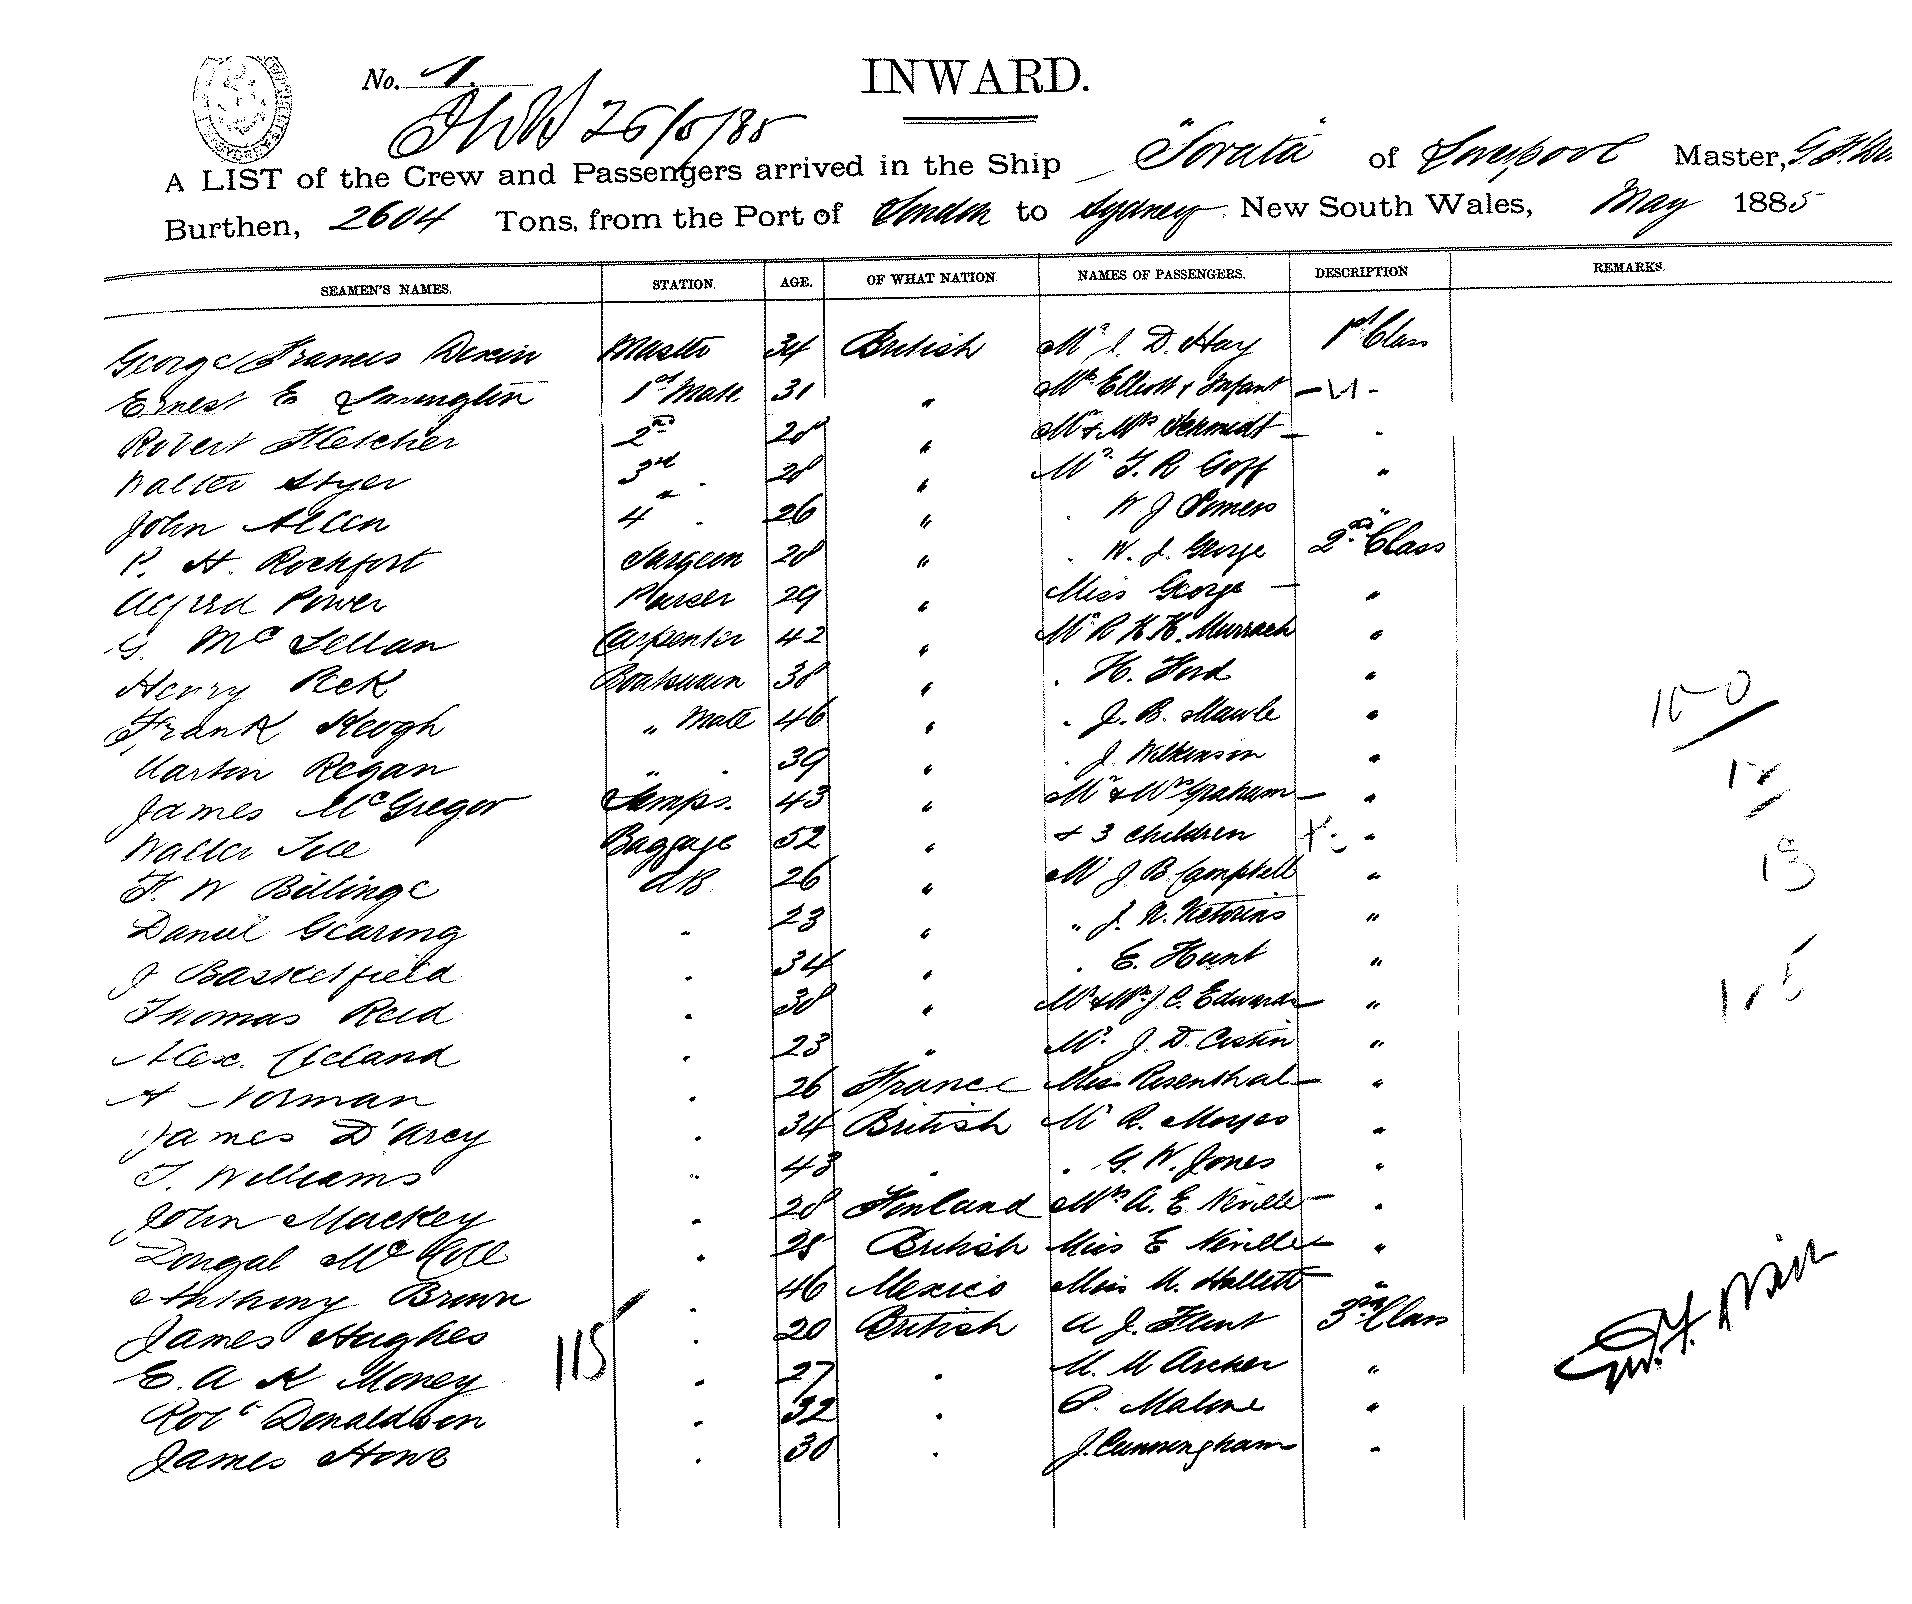 No. 1.
INWARD.
26/5/85
A LIST of the Crew and Passengers arrived in the Ship "Sorata" of Liverpool Master, G. F.
Burthen, 2604 Tons, from the Port of London to Sydney New South Wales, May 1885
SEAMEN'S NAMES. STATION. AGE. OF WHAT NATION NAMES OF PASSENGERS. DESCRIPTION REMARKS.
George Francis Dixon Master 34 British Mr J. D. Hay 1st Class
Ernest E Lavington 1st Mate 31 " Mrs Elliott & Infant - " -
Robert Fletcher 2nd 28 " Mr & Mrs Schmidt "
Walter Styer 3rd " 28 " Mr T. R Goff "
John Allen 4th " 26 " " W J Somers "
P. H. Rockfort Surgeon 28 " " W. J. George 2nd Class
Alfred Power Purser 29 " Miss George "
G. McLellan Carpenter 42 " Mr R K K. Murrach "
Henry Peek Boatswain 38 " " H. Ford "
Frank Keogh " Mate 46 " " J. B. Mawle "
Martin Regan " " 39 " " J. Wilkinson "
James McGregor Lamps. 43 " Mr & Mrs Graham "
Walter Baggage 52 " & 3 children "
F. W Billinge AB. 26 " Mr J B Campbell "
Daniel Gearing " 23 " " J. N. "
J Basketfield " 34 " " E. Hunt "
Thomas Reid " 38 " Mr & Mrs J. C. Edwards "
Alex. Cleland " 23 " Mr. J. D. "
A Norman " 26 France Miss Rosenthal "
James D'Arcy " 34 British Mr R. Moyes "
T. Williams " 43 " " G. W. Jones "
John Mackey " 28 Finland Mrs A. E. Neville "
Dongal McColl " 25 British Miss E Neville "
Anthony Brown " 46 Mexico Miss M. Hallett "
James Hughes " 20 British A J. Hunt 3rd Class
115
E. A K Money " 27 " M. M Archer "
Robt Donaldson " 32 " P. Malone "
James Howe " 30 " J. Cunningham "